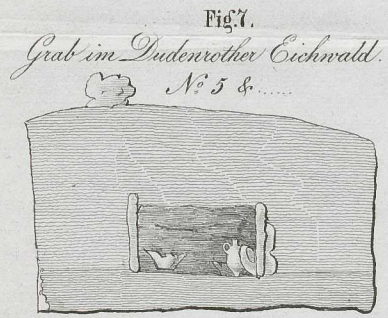 Fig. 7.
Grab im Dudenrother Eichwald.
No. 5 & ......